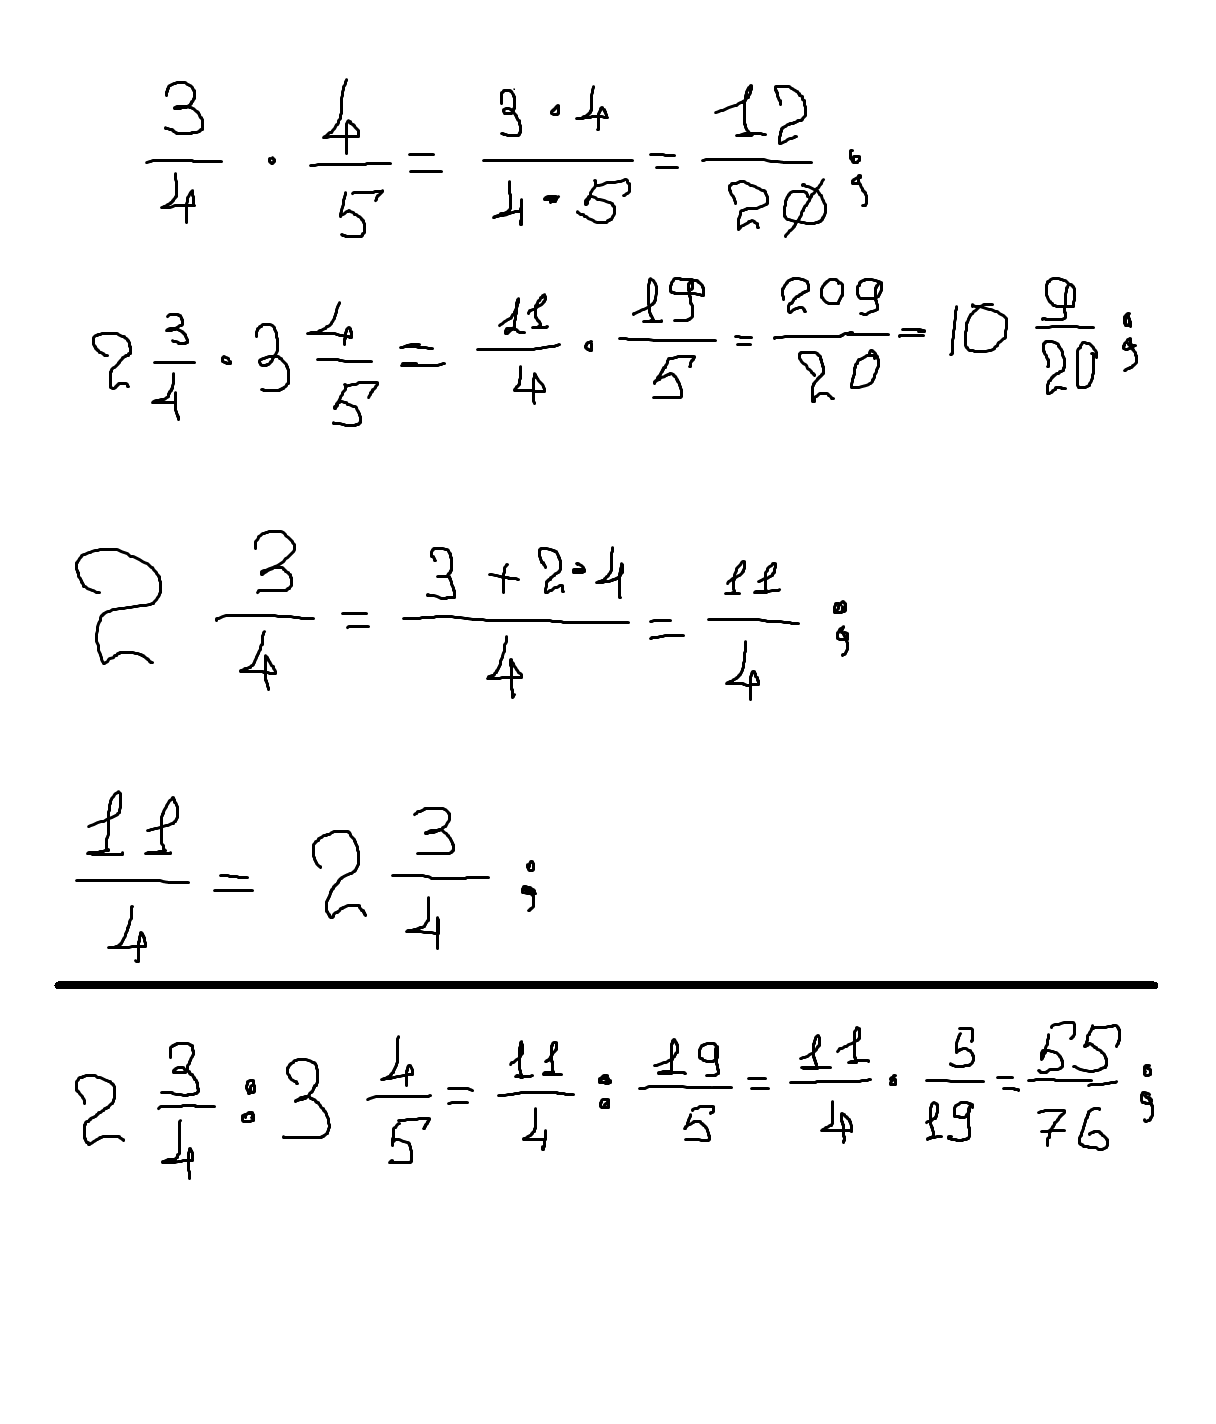 3/4 · 4/5 = 3·4/4·5 = 12/20;
2 3/4 · 3 4/5 = 11/4 · 19/5 = 209/20 = 10 9/20;
2 3/4 = 3+2·4/4 = 11/4;
11/4 = 2 3/4;
2 3/4 : 3 4/5 = 11/4 : 19/5 = 11/4 · 5/19 = 55/76;